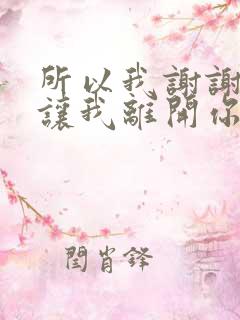 所以我謝謝
讓我離開你
閆肖鋒